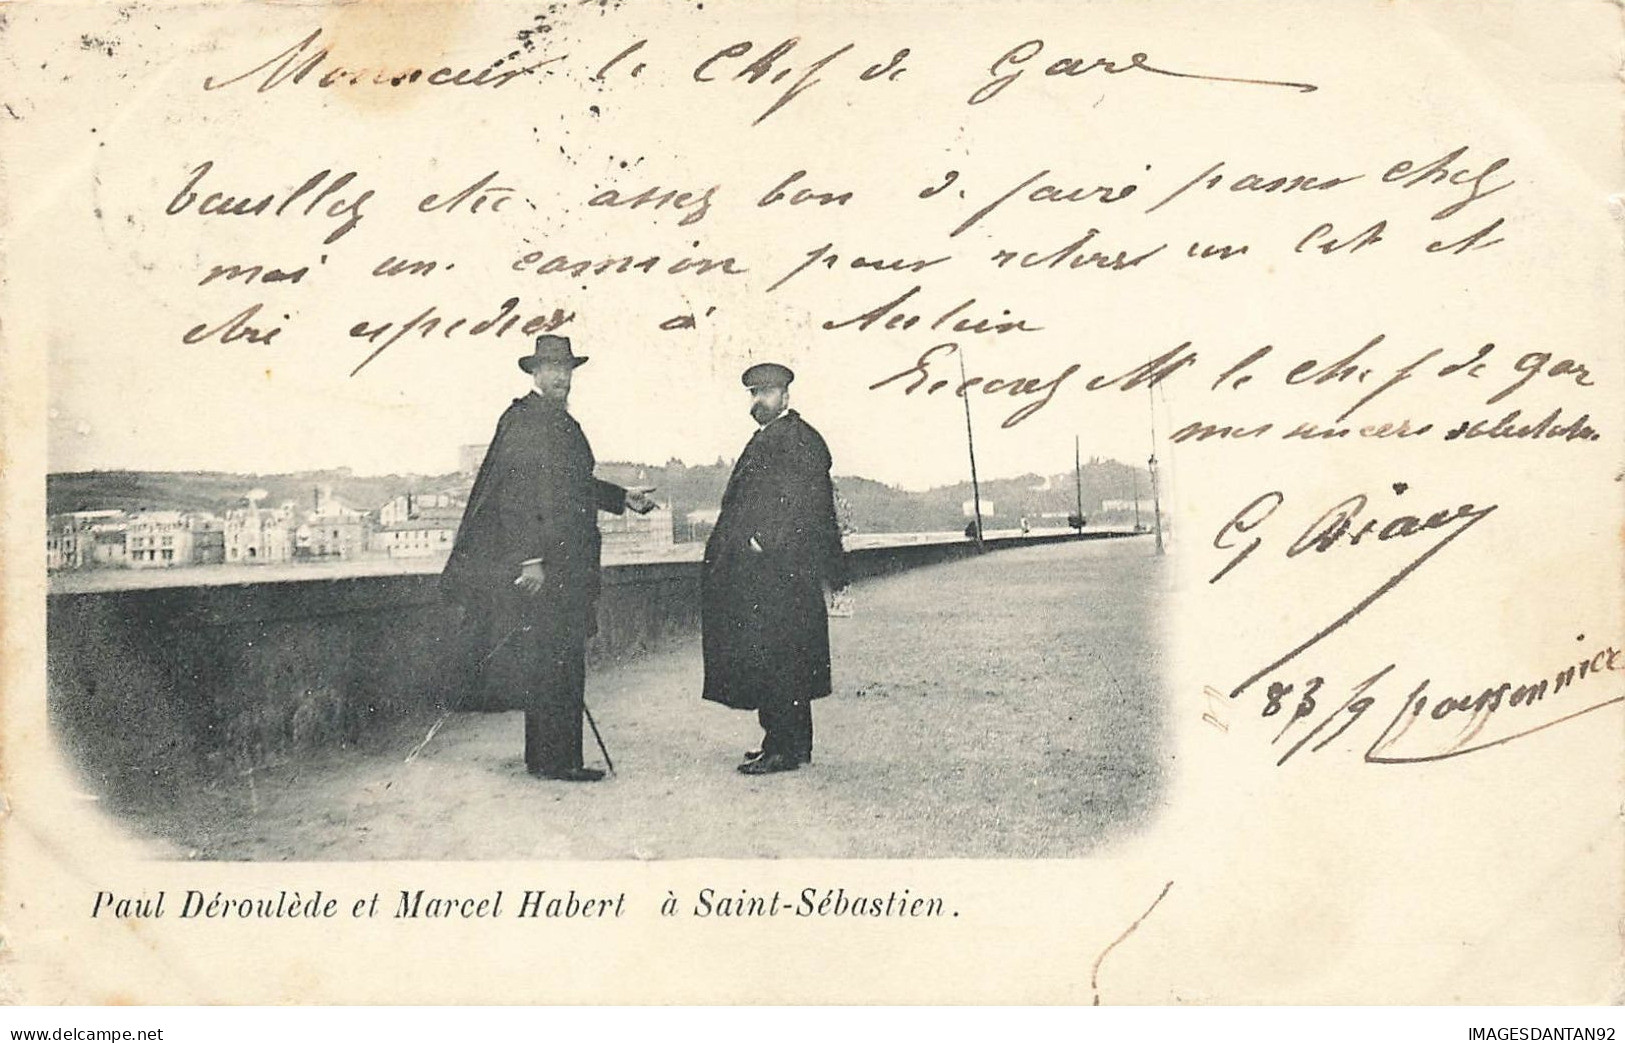 Monsieur le Chef de Gare
Veuillez être assez bon de faire passer chez
moi un camion pour retirer un lit et
être expedier à
Recevez Mr le chef de gar
mes sincers
G
83 / 9 poissonniere
Paul Déroulède et Marcel Habert à Saint-Sébastien.
www.delcampe.net
IMAGESDANTAN92